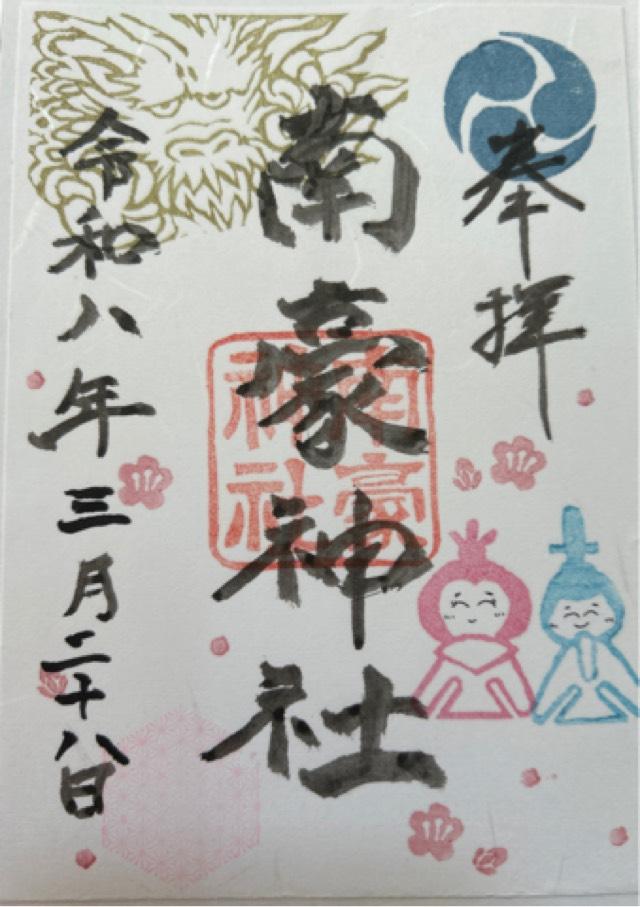 奉拝
南豪神社
南豪
神社
令和八年三月二十八日